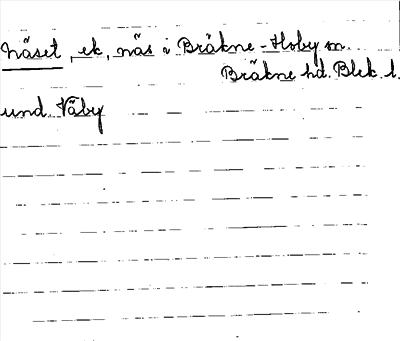 Näset, ek, näs i Bräkne-Hoby sn.
Bräkne hd. Blek. l.
und. Väby